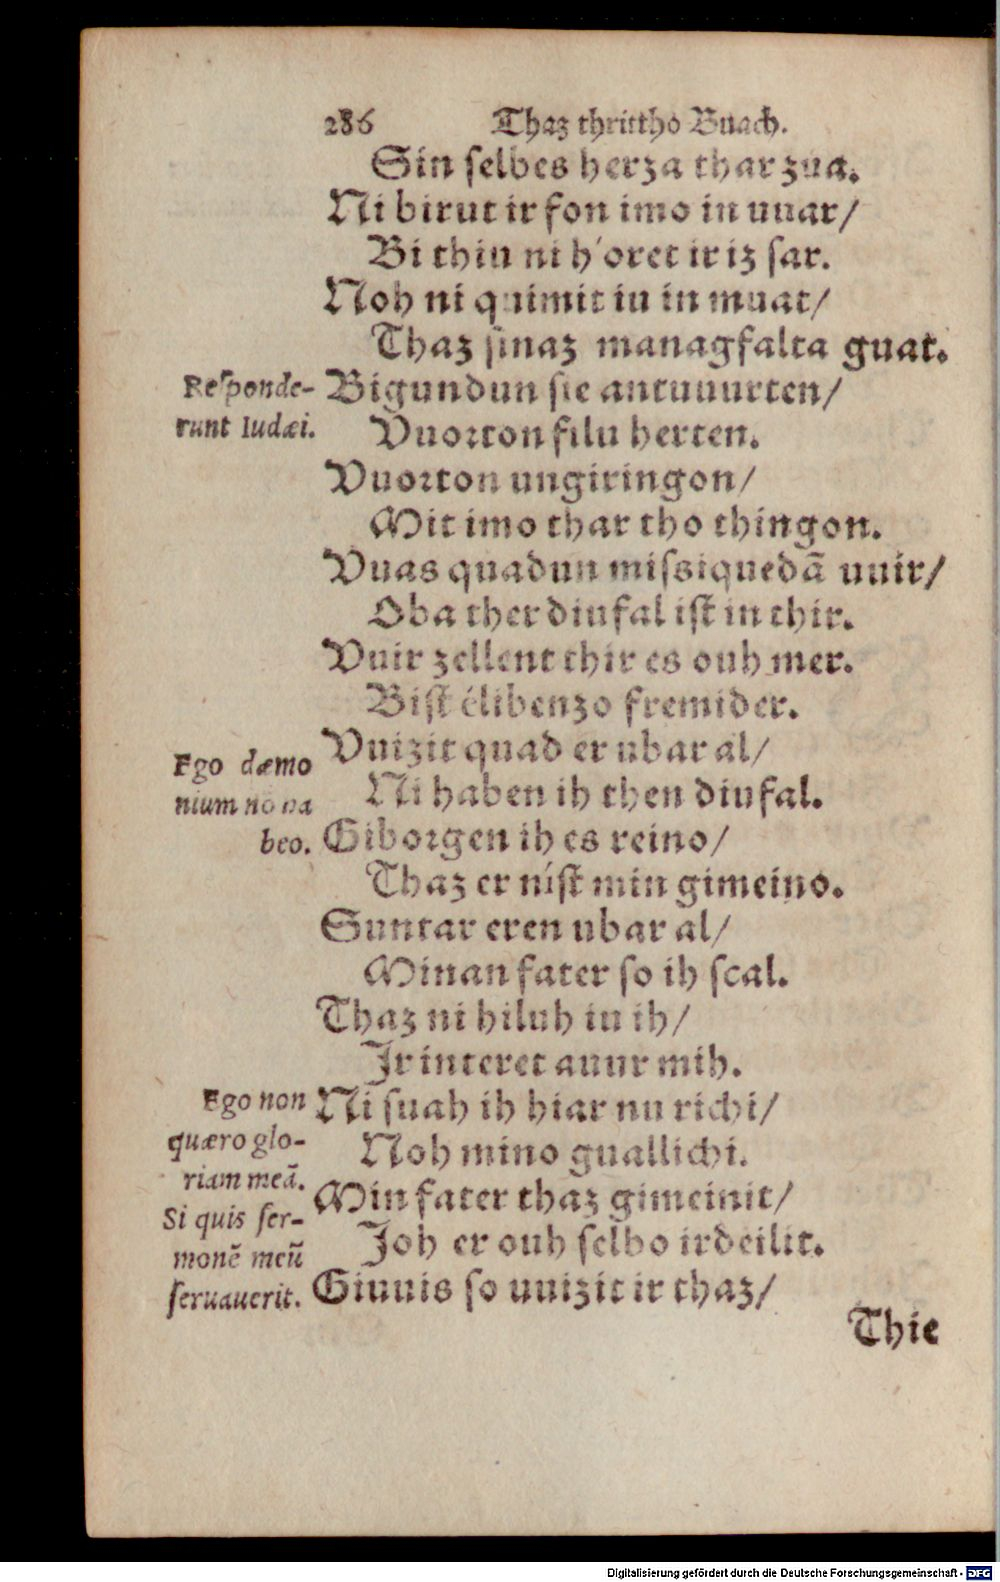 286 Thaz thrittho Buach.
Sin ſelbes herza thar zua.
Ni birut ir fon imo in uuar/
Bi thiu ni h'oret ir iz ſar.
Noh ni quimit iu in muat/
Thaz ſinaz managfalta guat.
Reſponde-
runt Iudæi.
Bigundun ſie antuuurten/
Vuorton filu herten.
Vuorton ungiringon/
Mit imo thar tho thingon.
Vuas quadun miſsiquedã uuir/
Oba ther diufal iſt in thir.
Vuir zellent thir es ouh mer.
Biſt élibenzo fremider.
Ego dæmo
nium nō ha
beo.
Vuizit quad er ubar al/
Ni haben ih then diufal.
Giborgen ih es reino/
Thaz er níſt min gimeino.
Suntar eren ubar al/
Minan fater ſo ih ſcal.
Thaz ni hiluh iu ih/
Ir interet auur mih.
Ego non
quæro glo-
riam meā.
Ni ſuah ih hiar nu richi/
Noh mino guallichi.
Min fater thaz gimeinit/
Joh er ouh ſelbo irdeilit.
Si quis ſer-
monē meū
ſeruauerit.
Giuuis ſo uuizit ir thaz/
Thie
Digitalisierung gefördert durch die Deutsche Forschungsgemeinschaft - DFG